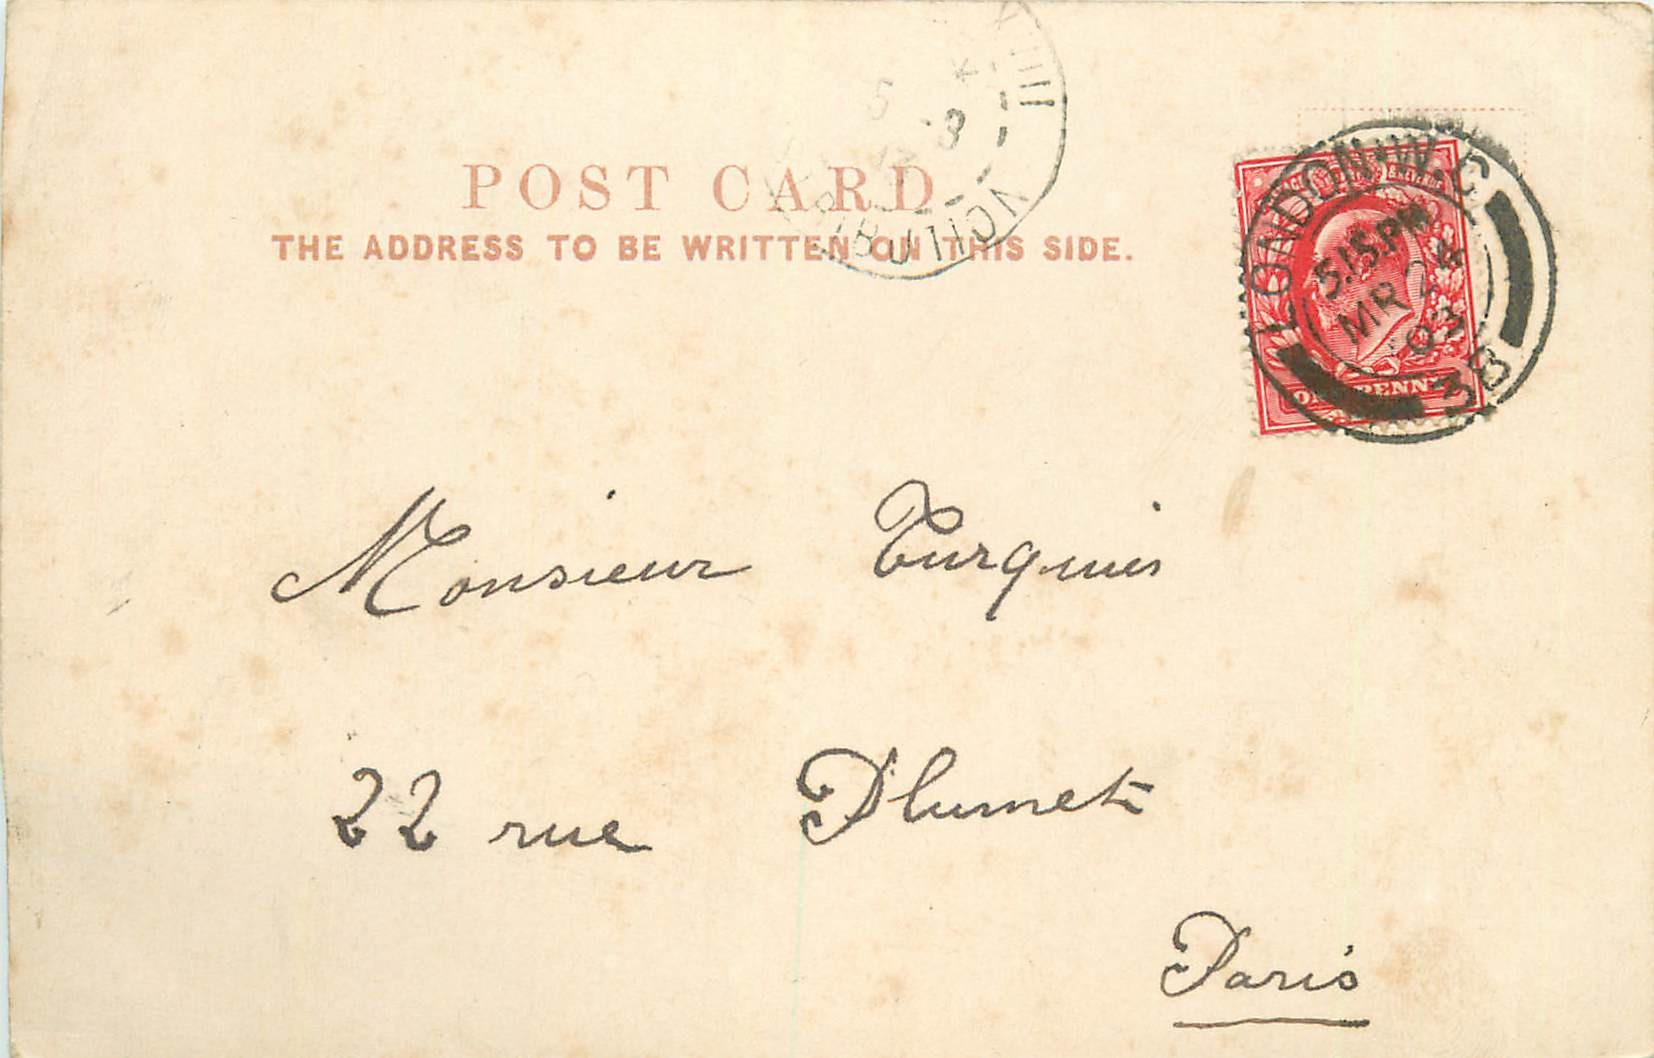 POST CARD
THE ADDRESS TO BE WRITTEN ON THIS SIDE.
LONDON·W.C
5.15.PM
MR 24
03
38
PENNY
DISTRIBUTION
Monsieur Turquin
22 rue Plumet
Paris